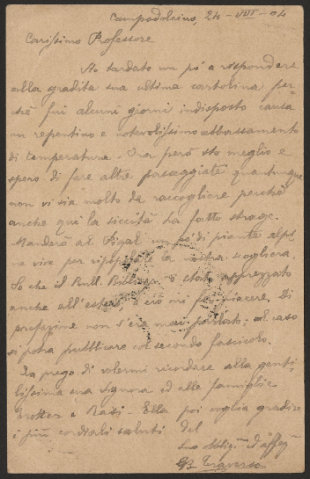 Campodolcino 24-VIII-04
Carissimo Professore
Ho tardato un pò a rispondere
alla gradita sua ultima cartolina per-
chè fui alcuni giorni indisposto causa
un repentino e notevolissimo abbassamento
di temperatura. Ora però sto meglio e
spero di fare altre passeggiate quantunque
non vi sia molto da raccogliere perchè
anche quà la siccità ha fatto strage.
Manderò al un pò di piante alpi-
ne vive per la
So che il Bull. è stato apprezzato
anche all' ciò mi fa piacere. Di
prefazione non s'è mai parlato; al caso
si potrà pubblicare col secondo fascicolo.
La prego di volermi ricordare alla genti-
lissima sua Signora ed alle famiglie
e Ella poi voglia gradire
i più cordiali saluti del
suo obblig. aff.